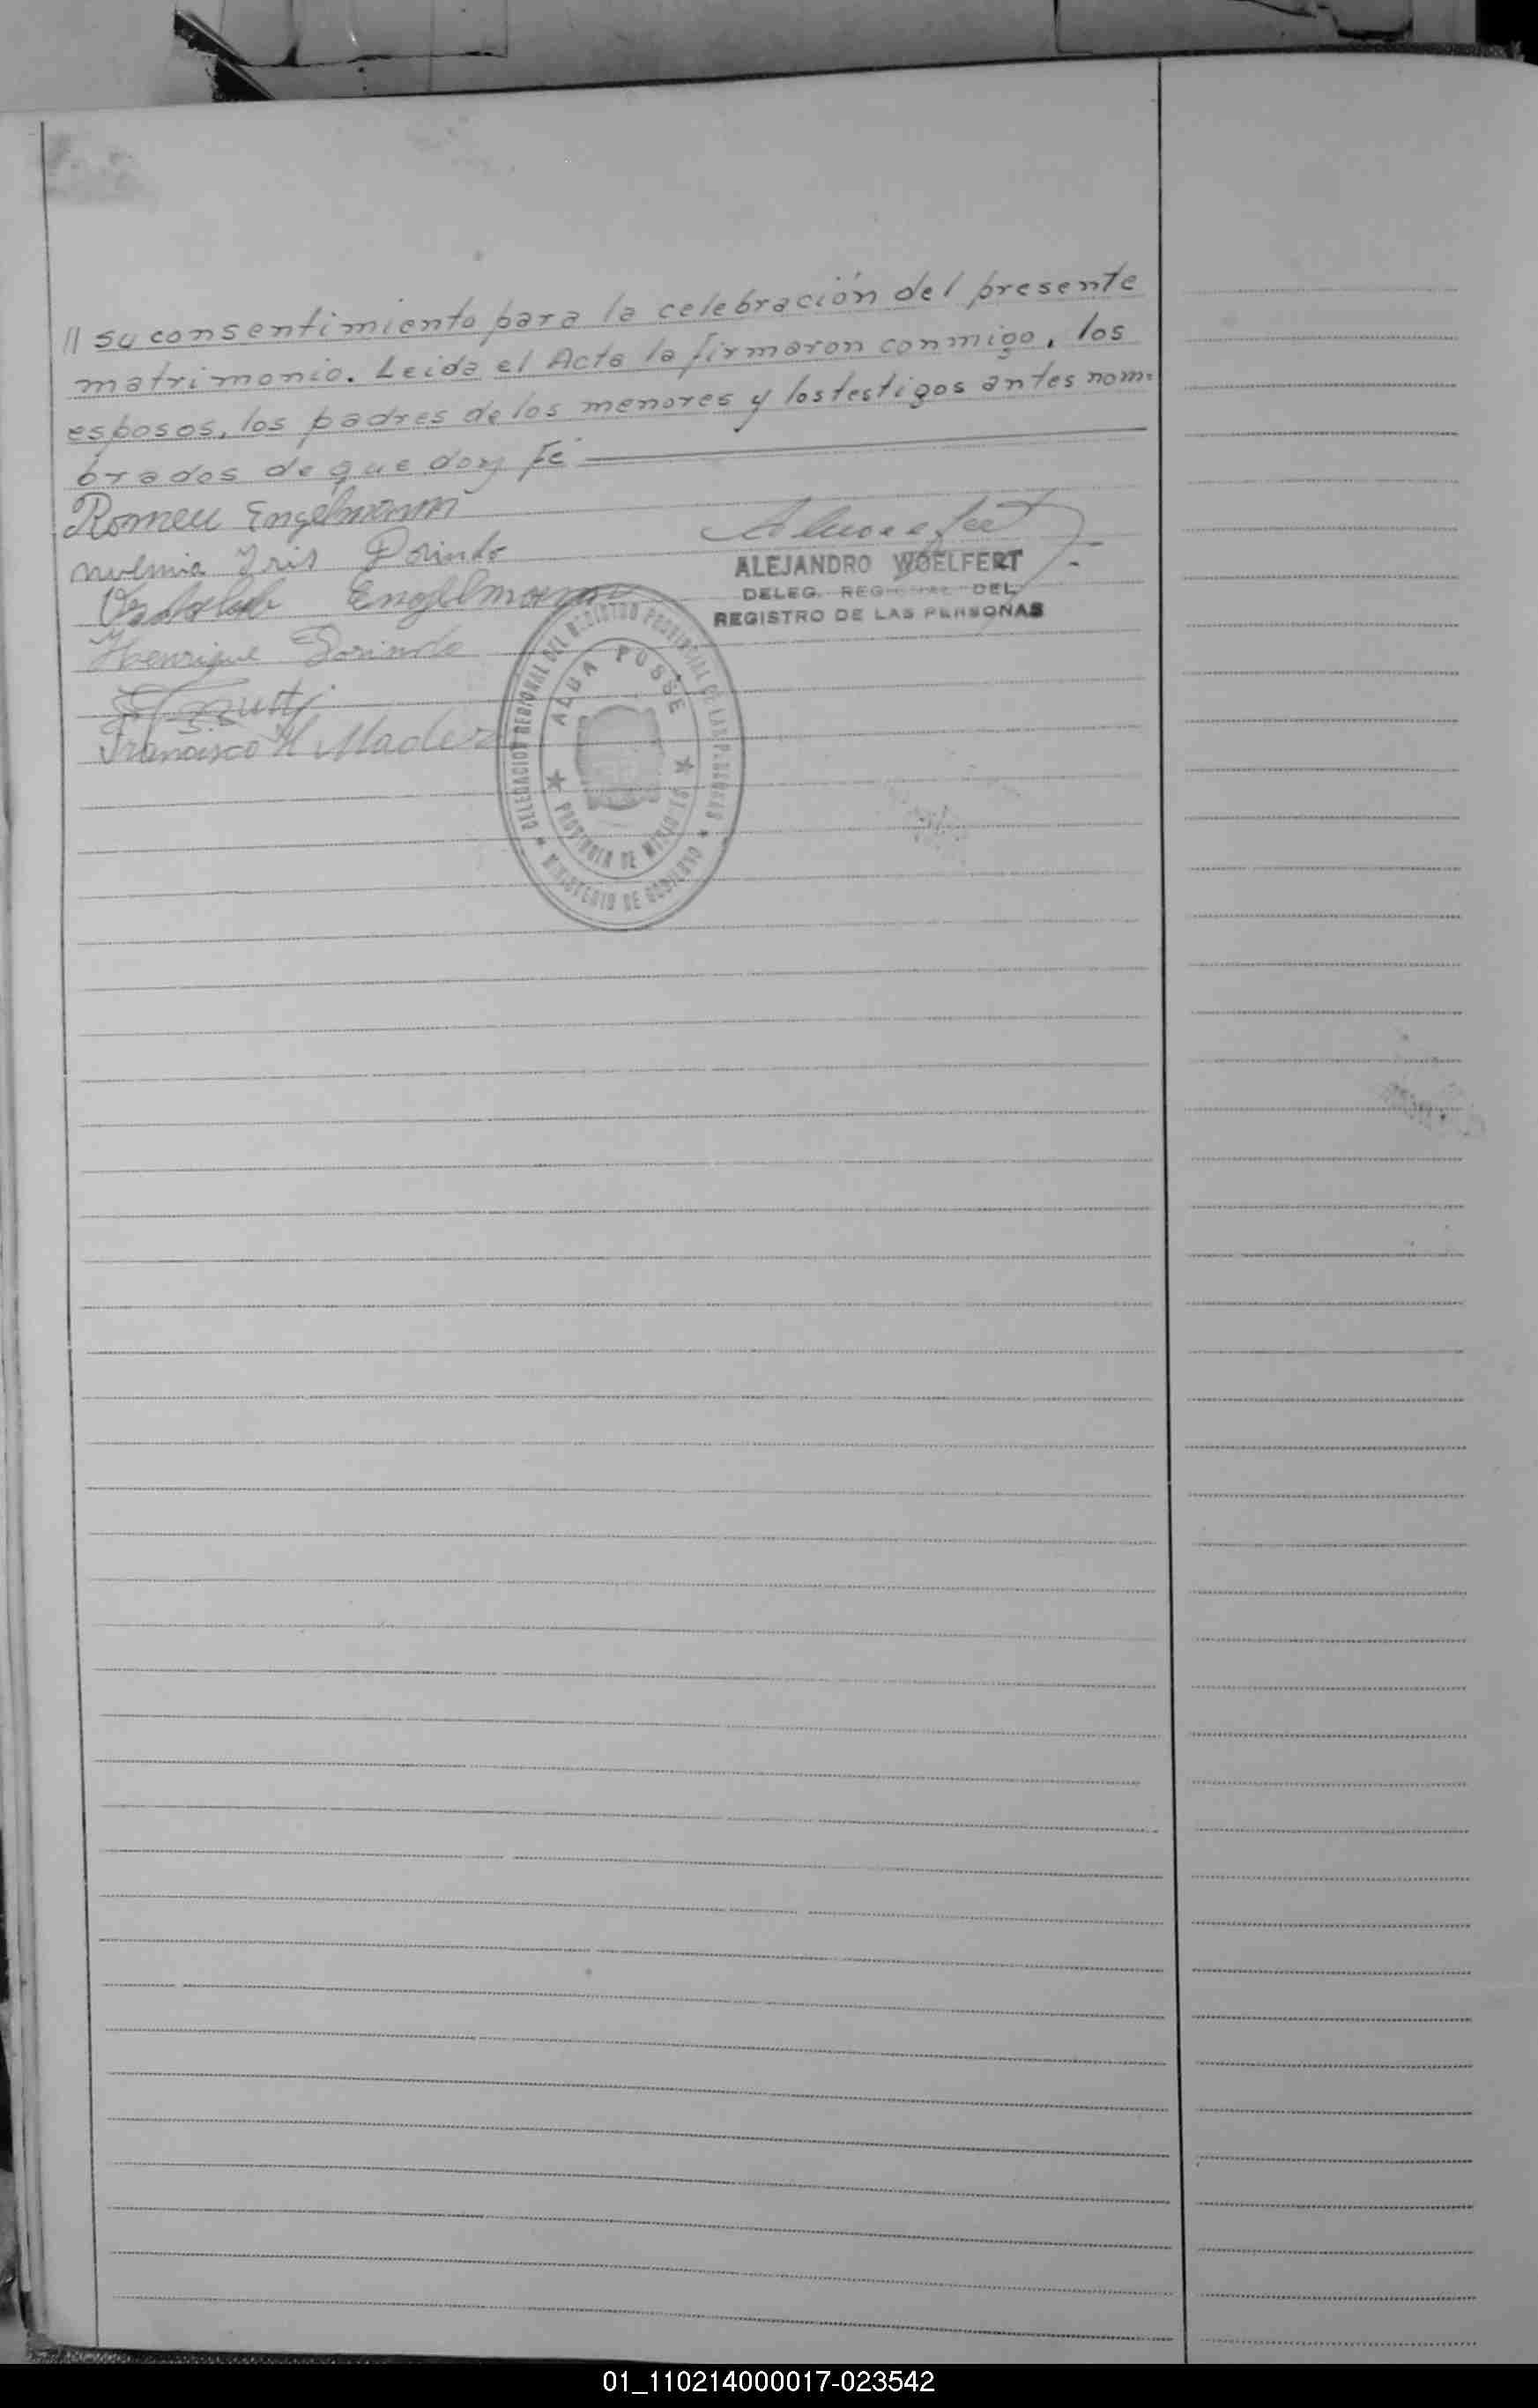 // su consentimiento para la celebración del presente
matrimonio. Leida el Acta la firmaron conmigo, los
esposos, los padres de los menores y los testigos antes nom-
brados de que doy fé
Romeu Engelmann
Iris Dorindo
Engelmann
Henrique Dorindo
Francisco H Mader
ALEJANDRO WOELFERT
DELEG. REGIONAL DEL
REGISTRO DE LAS PERSONAS
DELEGACION REGIONAL DEL REGISTRO PROVINCIAL DE LAS PERSONAS
ALBA POSSE
PROVINCIA DE MISIONES
MINISTERIO DE GOBIERNO
01_110214000017-023542